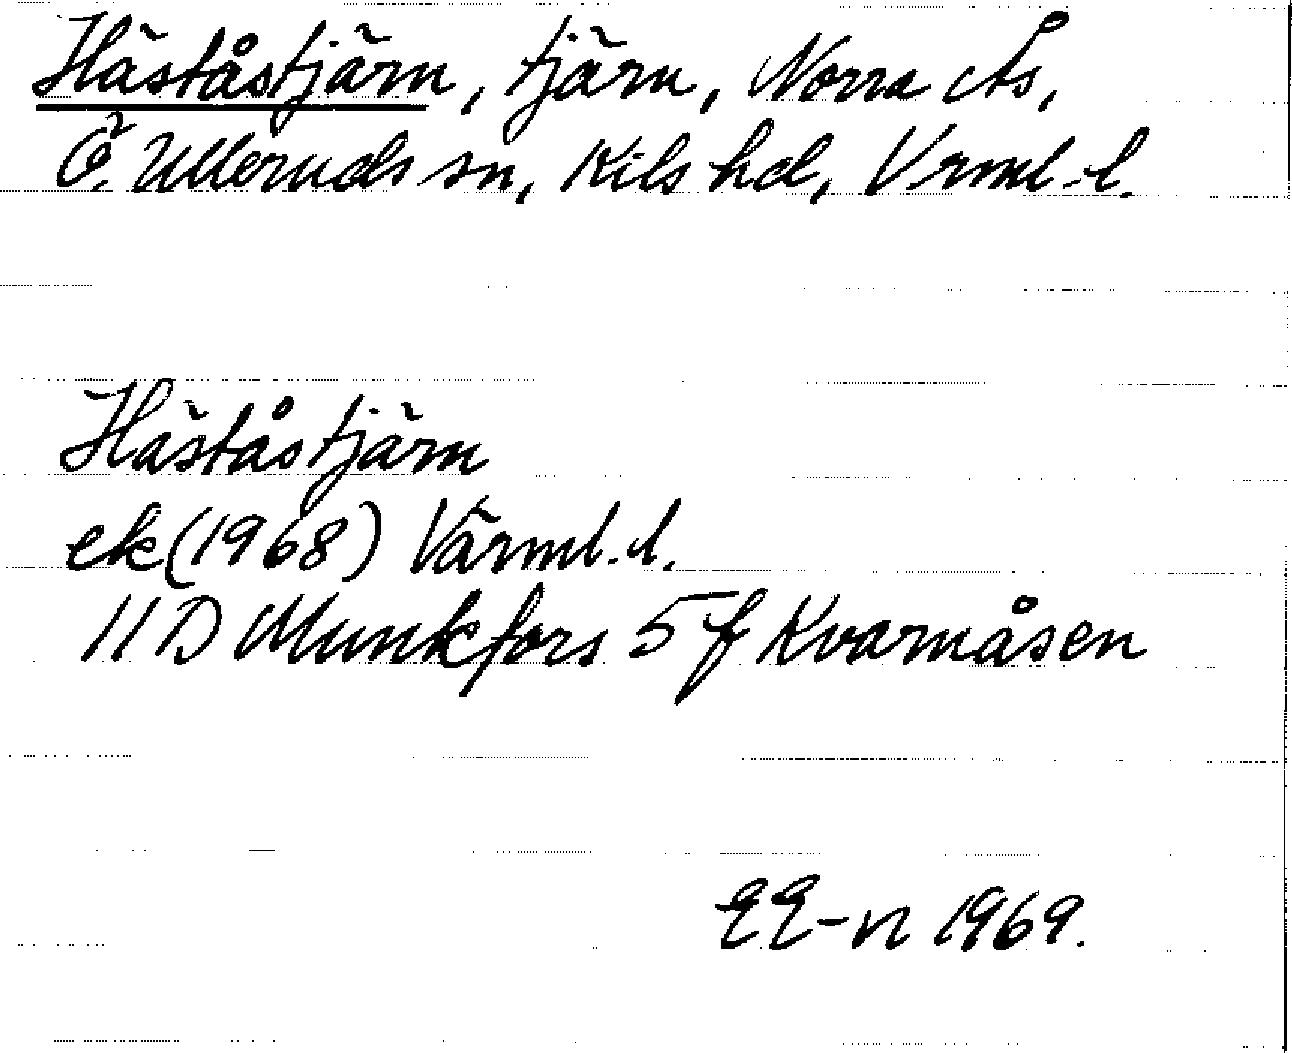 Häståstjärn, tjärn, Norra Ås,
Ö. Ulleruds sn, Kils hd, Vrml.l.
Häståstjärn
ek(1968) Värml.l.
11D Munkfors 5f Kvarnåsen
EE-n 1969.